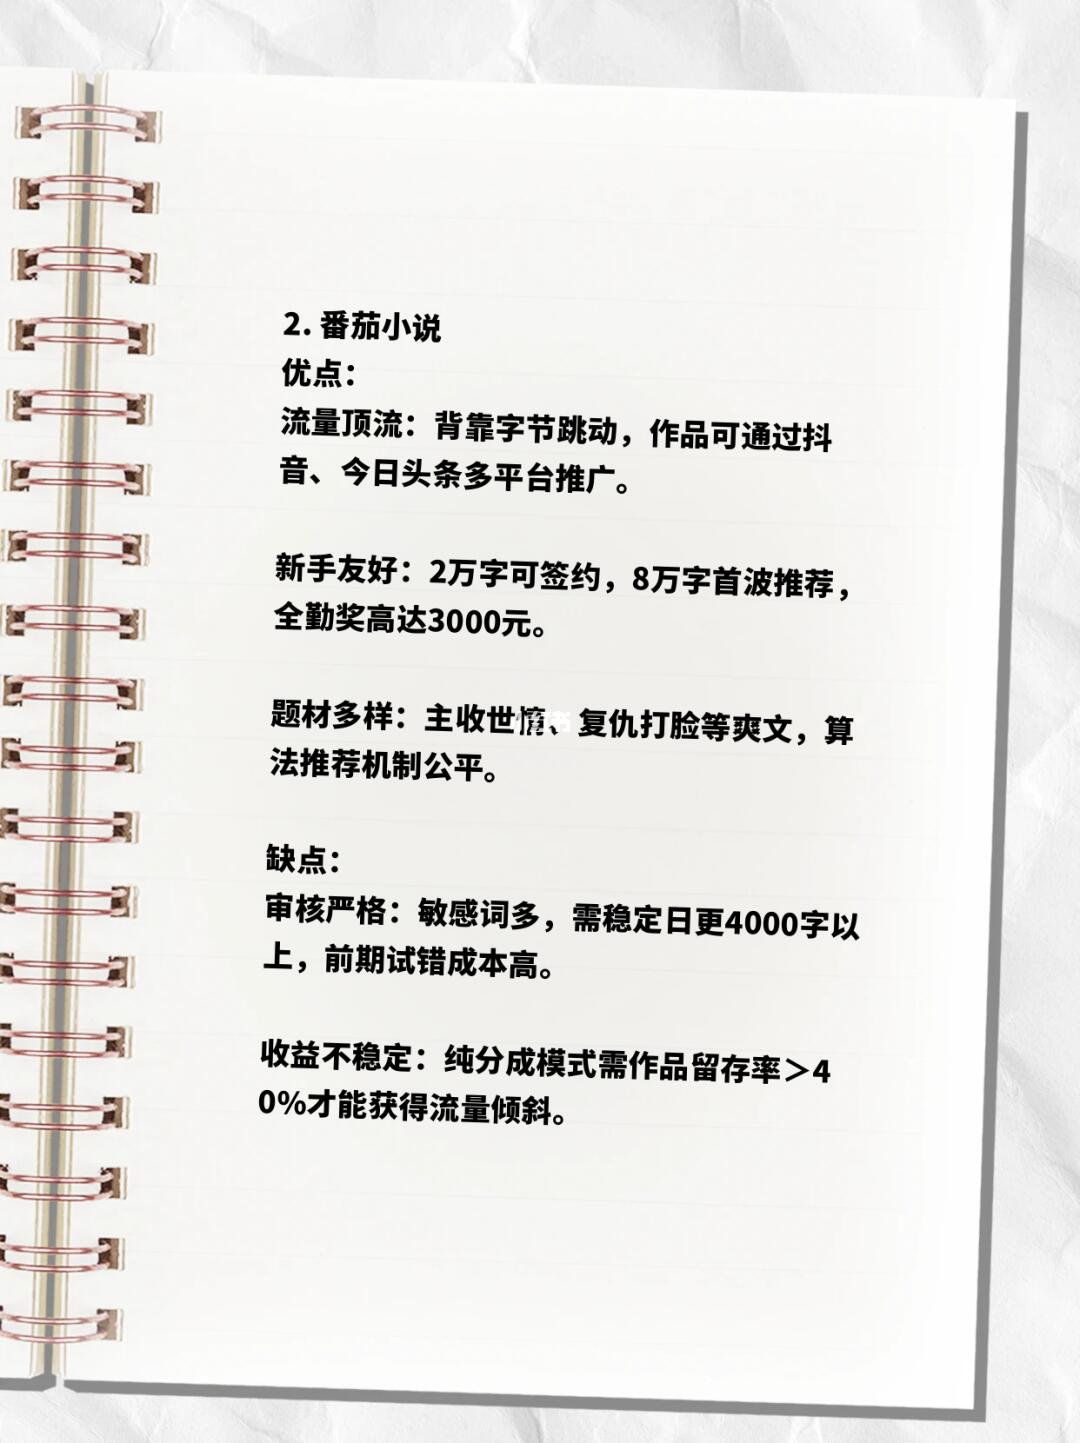 2. 番茄小说
优点：
流量顶流：背靠字节跳动，作品可通过抖
音、今日头条多平台推广。
新手友好：2万字可签约，8万字首波推荐，
全勤奖高达3000元。
题材多样：主收世情、复仇打脸等爽文，算
法推荐机制公平。
缺点：
审核严格：敏感词多，需稳定日更4000字以
上，前期试错成本高。
收益不稳定：纯分成模式需作品留存率＞4
0%才能获得流量倾斜。